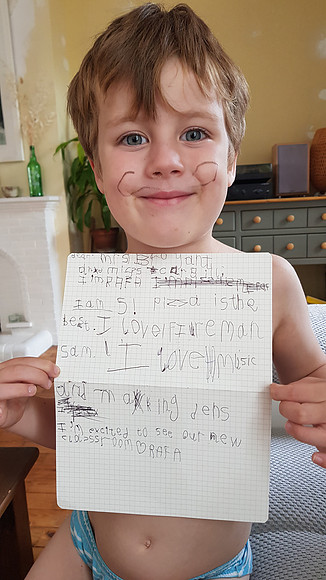 dear mrs Bru Hant
and miss
I'm RAFA
I am 5! pizza is the
best. I love FIreman
sam. I love music
and making dens
I'm excited to see our new
classroom♡RAFA